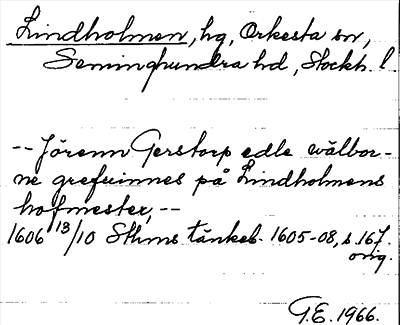 Lindholmen, hg, Orkesta sn,
Seminghundra hd, Stockh. l
-- Jörenn Gerstorp edle wälbor-
ne grefuinnes på Lindholmens
hofmester, --
1606 13/10 Sthms tänkeb. 1605-08, s 167.
orig.
G.E. 1966.